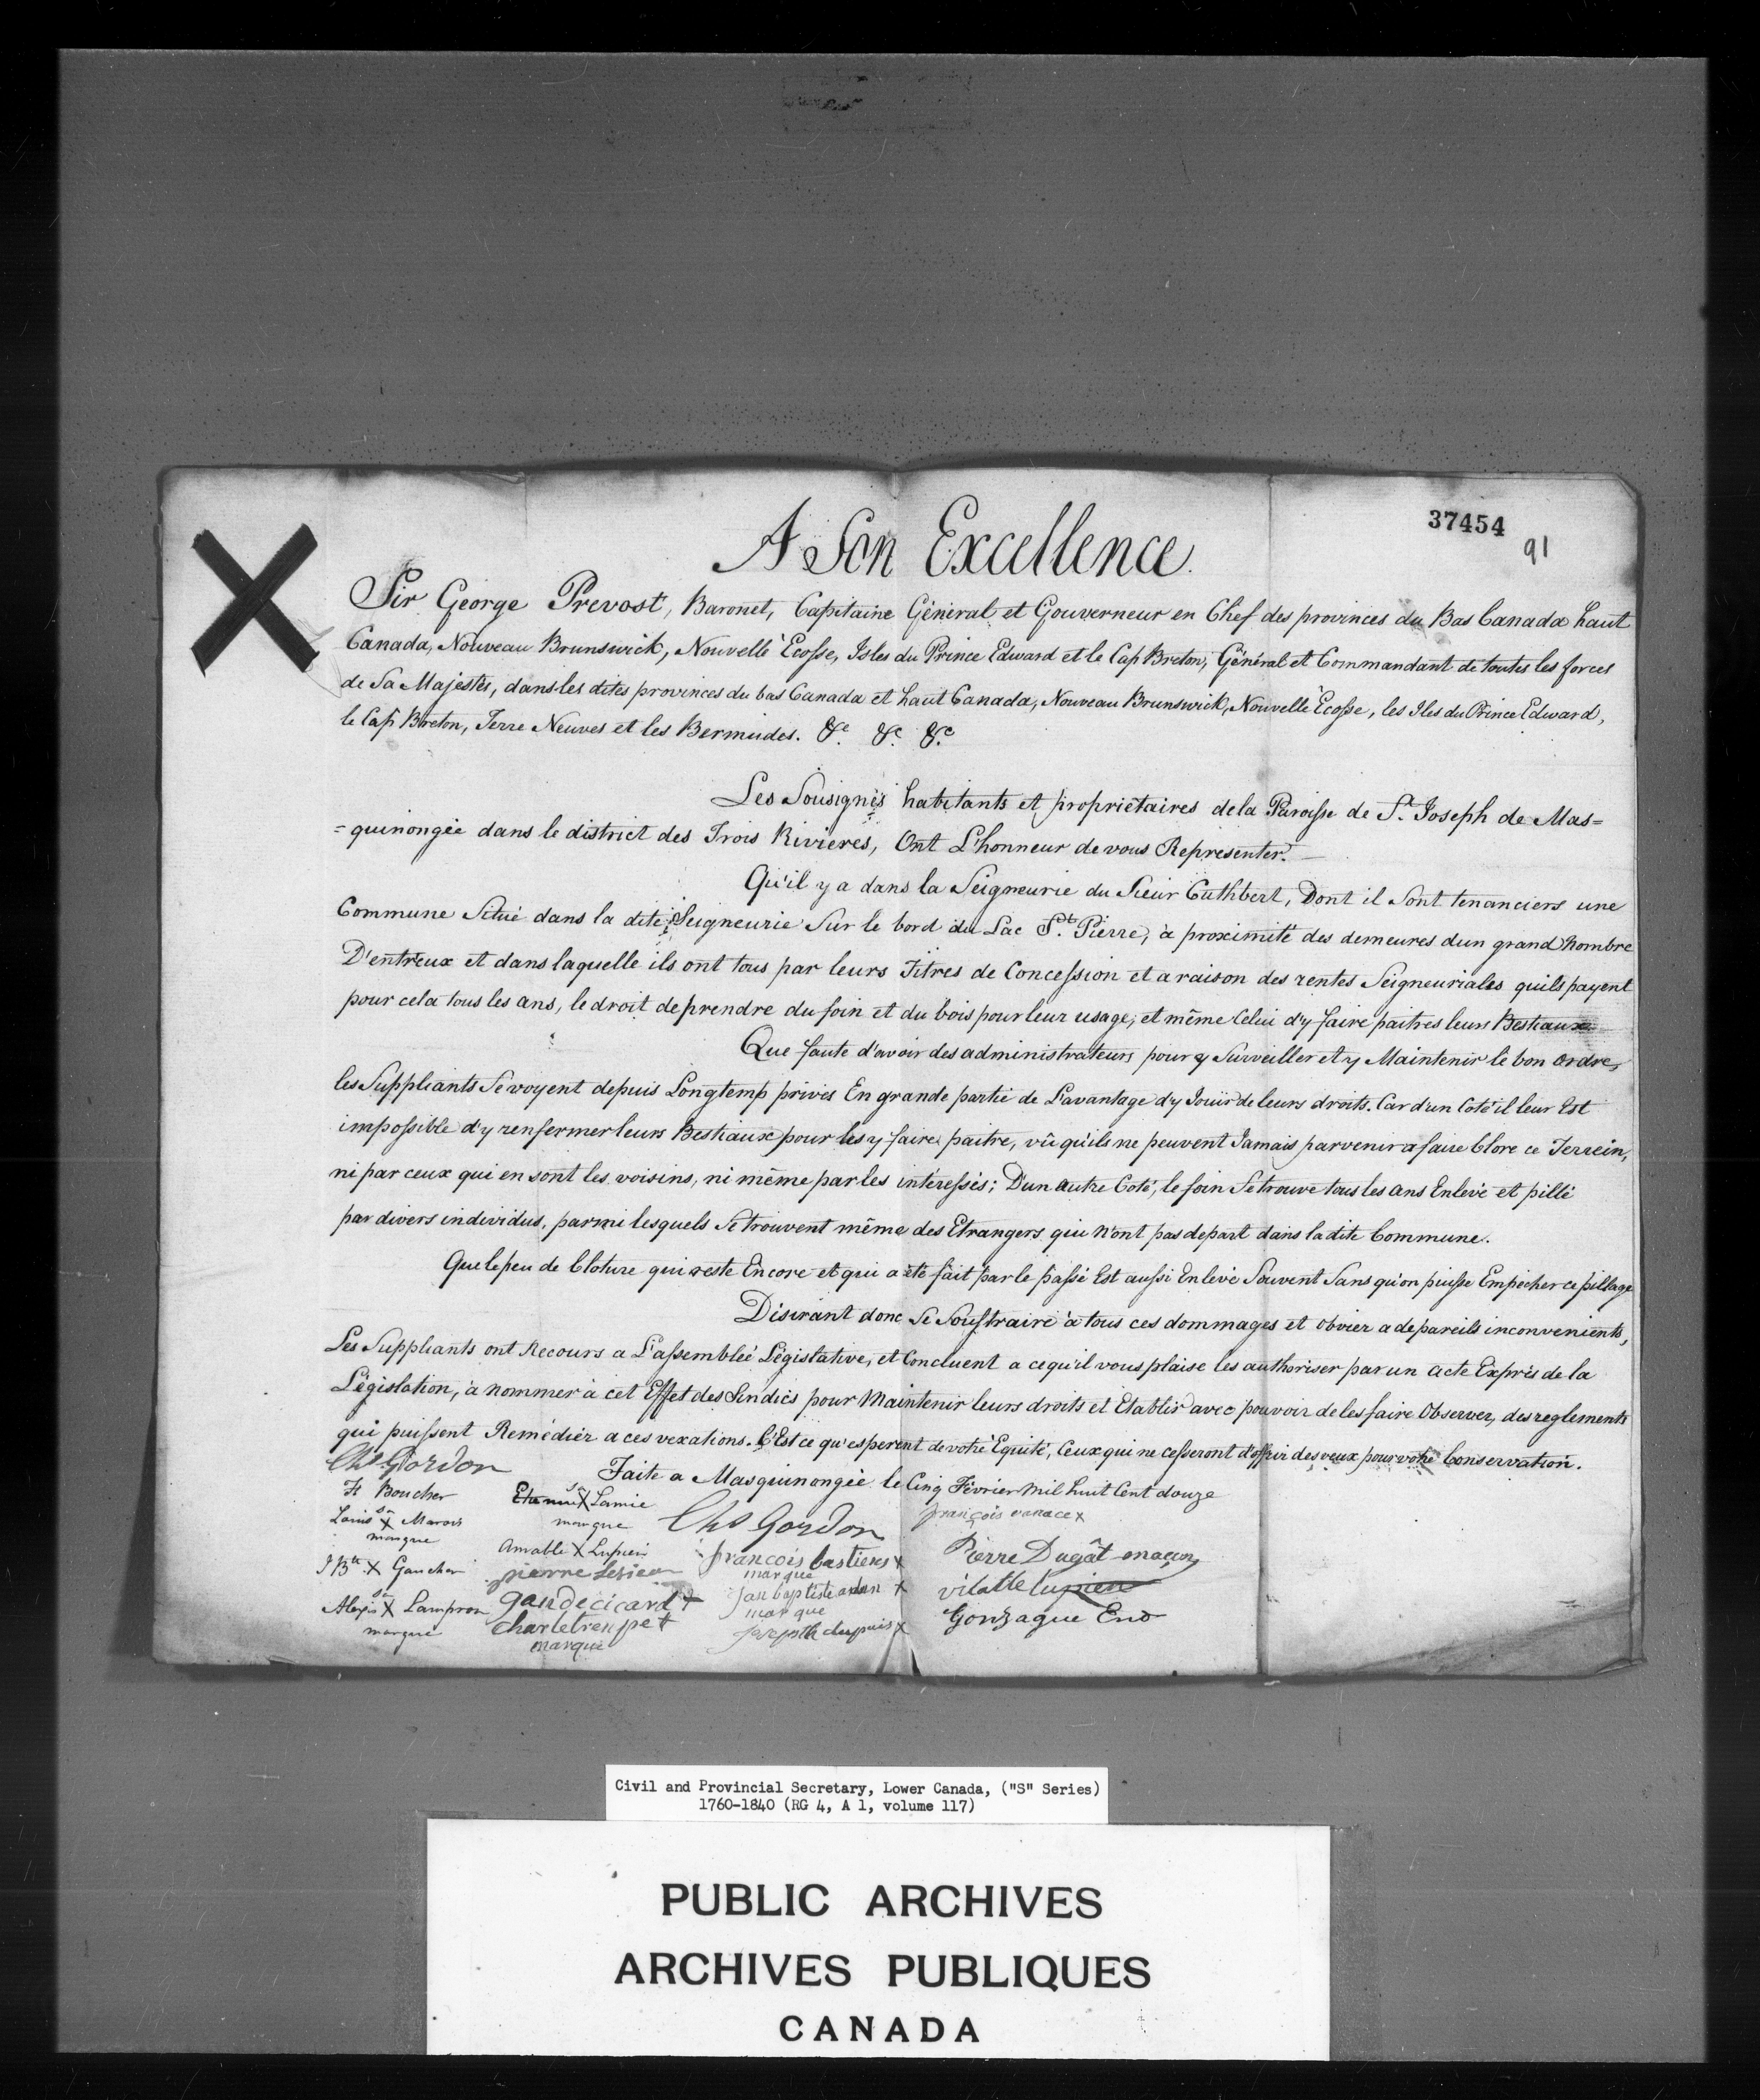 37454
91
A Son Excellence.
Sir George Prevost, Baronet, Capitaine Géneral et Gouverneur en Chef des provinces du Bas Canada haut
Canada, Nouveau Brunswick, Nouvelle Ecosse, Isles du Prince Edward et le Cap Breton, Général et Commandant de toutes les forces
de Sa Majestés, dans les dites provinces du bas Canada et haut Canada, Nouveau Brunswick, Nouvelle Ecosse, les Iles du Prince Edward,
le Cap Breton, Terre Neuves et les Bermudes. &c. &c. &c.
Les Sousignés habitants et propriétaires de la Paroisse de St. Joseph de Mas=
=quinongée dans le district des Trois Rivieres, Ont L'honneur de vous Representer.
Qu'il y a dans la Seigneurie du Sieur Cuthbert, Dont il Sont tenanciers une
Commune Situé dans la dite Seigneurie Sur le bord du Lac St. Pierre, à proximité des demeures dun grand Nombre
D'entreux et dans laquelle ils ont tous par leurs Titres de Concession et a raison des rentes Seigneuriales quils payent
pour cela tous les ans, le droit de prendre du foin et du bois pour leur usage, et même Celui d'y faire paitres leurs Bestiaux
Que faute d'avoir des administrateurs pour y Surveiller et y Maintenir le bon Ordre,
les Suppliants Se voyent depuis Longtemp privés En grande partie de L'avantage d'y Jouir de leurs droits. Car d'un Coté il leur Est
impossible d'y renfermer leurs Bestiaux pour les y faire paitre, vû qu'ils ne peuvent Jamais parvenir a faire Clore ce Terrein,
ni par ceux qui en sont les voisins, ni même par les intéressés; D'un autre Coté, le foin Se trouve tous les ans Enlevé et pillé
par divers individus, parmi lesquels Se trouvent même des Etrangers qui N'ont pas de part dans la dite Commune.
Que le peu de Cloture qui reste Encore et qui a été fait par le passé Est aussi Enlevé Souvent Sans qu'on puisse Empécher ce pillage
Désirant donc Se Soustraire à tous ces dommages et obvier a de pareils inconvenients,
Les Suppliants ont Recours a L'assemblée Législative, et Concluent a ce qu'il vous plaise les authoriser par un Acte Exprés de la
Législation, à nommer à cet Effet des Sindics pour Maintenir leurs droits et Etablir avec pouvoir de les faire Observer, des reglements
qui puissent Remédiér a ces vexations. C'Est ce qu'esperent de votre Equité, Ceux qui ne cesseront d'offrir des veux pour votre Conservation.
Faite a Masquinongée le Cinq Février Mil huit Cent douze
Chs Gordon
Boucher
Louis sa X Marois
marque
J Bte X Gaucher
Alexis sa X Lampron
marque
sa X Lamie
marque
Amable X Lupien
pierre Lesieur
+
+
marque
Chs Gordon
francois bastiens x
marque
x
marque
joseph dupuis x
françois x
Pierre Dugât
lupien
Gonzague Eno
Civil and Provincial Secretary, Lower Canada, ("S" Series)
1760-1840 (RG 4, A 1, volume 117)
PUBLIC ARCHIVES
ARCHIVES PUBLIQUES
CANADA